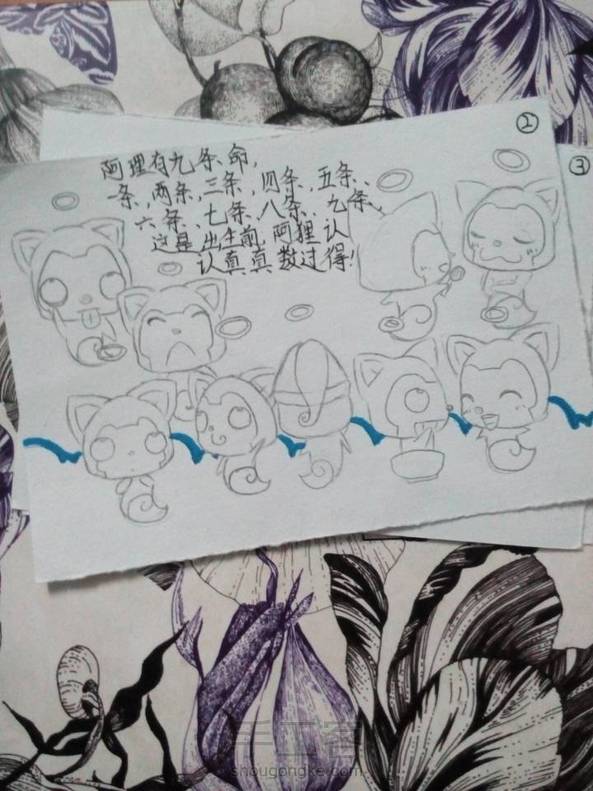 ②
③
阿理有九条命，
一条，两条，三条，四条、五条、
六条、七条、八条、九条、
这是出生前，阿狸认
认真真数过得！
手工客
shougongke.com